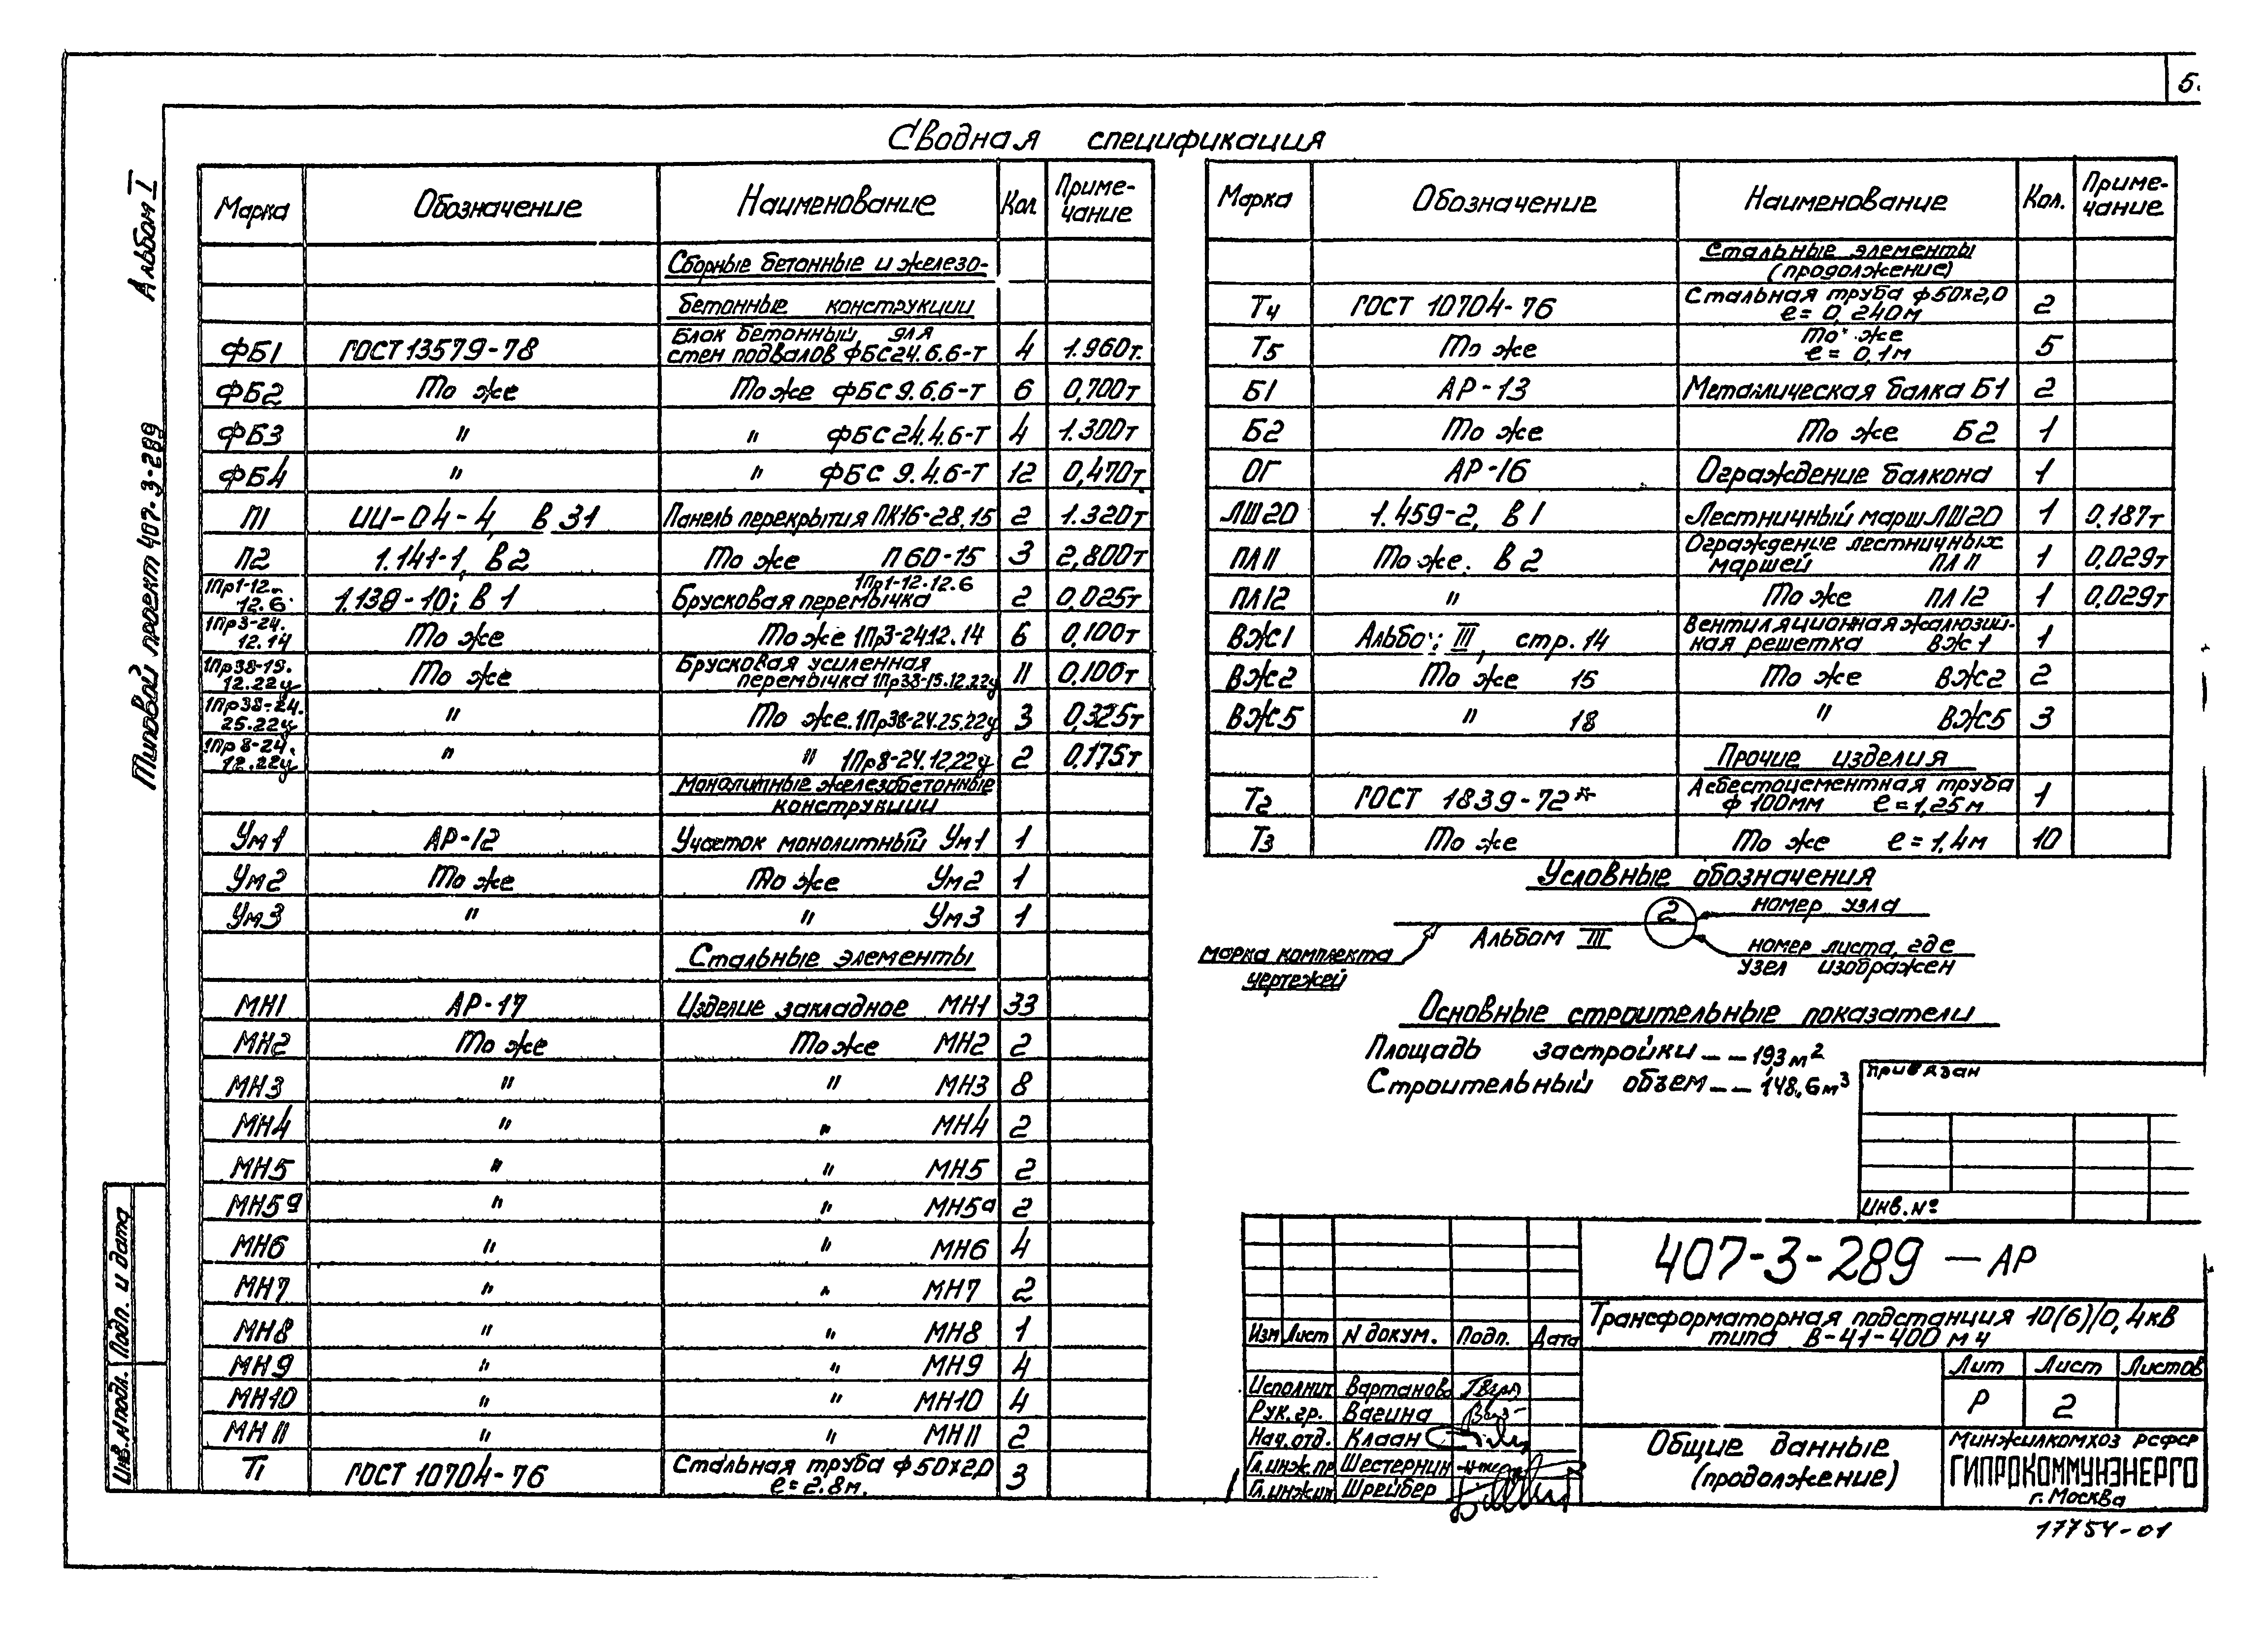 5.
Альбом I
Типовой проект 407-3-289
Сводная спецификация
Марка Обозначение Наименование Кол Приме-чание
Сборные бетонные и железо-
бетонные конструкции
ФБ1 ГОСТ 13579-78 Блок бетонный для стен подвалов ФБС24.6.6-Т 4 1.960т.
ФБ2 То же То же ФБС 9.6.6-Т 6 0,700т
ФБ3 " " ФБС 24.4.6-Т 4 1.300т
ФБ4 " " ФБС 9.4.6-Т 12 0,470т
П1 ИИ-04-4, в 31 Панель перекрытия ПК16-28.15 2 1.320т
П2 1.141-1, в 2 То же П 60-15 3 2,800т
1Пр1-12.12.6 1.139-10; в 1 Брусковая перемычка 1Пр1-12.12.6 2 0,025т
1Пр3-24.12.14 То же То же 1Пр3-24.12.14 6 0,100т
1Пр38-15.12.22у То же Брусковая усиленная перемычка 1Пр38-15.12.22у 11 0,100т
1Пр38-24.25.22у " То же. 1Пр38-24.25.22у 3 0,325т
1Пр8-24.12.22у " " 1Пр8-24.12.22у 2 0,175т
Монолитные железобетонные
конструкции
Ум1 АР-12 Участок монолитный Ум1 1
Ум2 То же То же Ум2 1
Ум3 " " Ум3 1
Стальные элементы
МН1 АР-17 Изделие закладное МН1 33
МН2 То же То же МН2 2
МН3 " " МН3 8
МН4 " " МН4 2
МН5 " " МН5 2
МН5а " " МН5а 2
МН6 " " МН6 4
МН7 " " МН7 2
МН8 " " МН8 1
МН9 " " МН9 4
МН10 " " МН10 4
МН11 " " МН11 2
Т1 ГОСТ 10704-76 Стальная труба ф50х2,0 ℓ=2.8м. 3
Марка Обозначение Наименование Кол. Приме-чание
Стальные элементы
(продолжение)
Т4 ГОСТ 10704-76 Стальная труба ф50х2,0 ℓ=0,240м 2
Т5 То же То же ℓ=0,1м 5
Б1 АР-13 Металлическая балка Б1 2
Б2 То же То же Б2 1
ОГ АР-16 Ограждение балкона 1
ЛШ20 1.459-2, в 1 Лестничный марш ЛШ20 1 0,187т
ПЛ11 То же. в 2 Ограждение лестничных маршей ПЛ11 1 0,029т
ПЛ12 " То же ПЛ12 1 0,029т
ВЖ1 Альбо: III, стр. 14 Вентиляционная жалюзий-ная решетка ВЖ1 1
ВЖ2 То же 15 То же ВЖ2 2
ВЖ5 " 18 " ВЖ5 3
Прочие изделия
Т2 ГОСТ 1839-72* Асбестоцементная труба ф 100мм ℓ=1,25м 1
Т3 То же То же ℓ=1,4м 10
Условные обозначения
2
номер узла
Альбом III
марка комплекта
чертежей
номер листа, где
узел изображен
Основные строительные показатели
Площадь застройки -- 19,3м²
Строительный объем -- 148,6м³
Привязан
Инв.№
407-3-289 — АР
Трансформаторная подстанция 10(6)/0,4кВ
типа В-41-400 м4
Изм Лист N докум. Подп. Дата
Исполнит Вартанова
Рук.гр. Вагина
Нач.отд. Клаан
Гл.инж.пр Шестернин
Гл.инжин Шрейбер
Лит Лист Листов
Р 2
Общие данные
(продолжение)
Минжилкомхоз РСФСР
ГИПРОКОММУНЭНЕРГО
г. Москва
17754-01
Инв.N подл. Подп. и дата